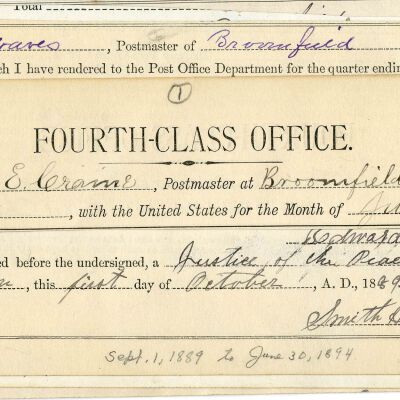 Total
raves , Postmaster of Broomfield
ch I have rendered to the Post Office Department for the quarter ending
1
FOURTH-CLASS OFFICE.
E. Craine , Postmaster at Broomfield
, with the United States for the Month of
Edward
ed before the undersigned, a Justice of the Peac
, this first day of October , A. D., 188 9
Smith
Sept. 1, 1889 to June 30, 1894